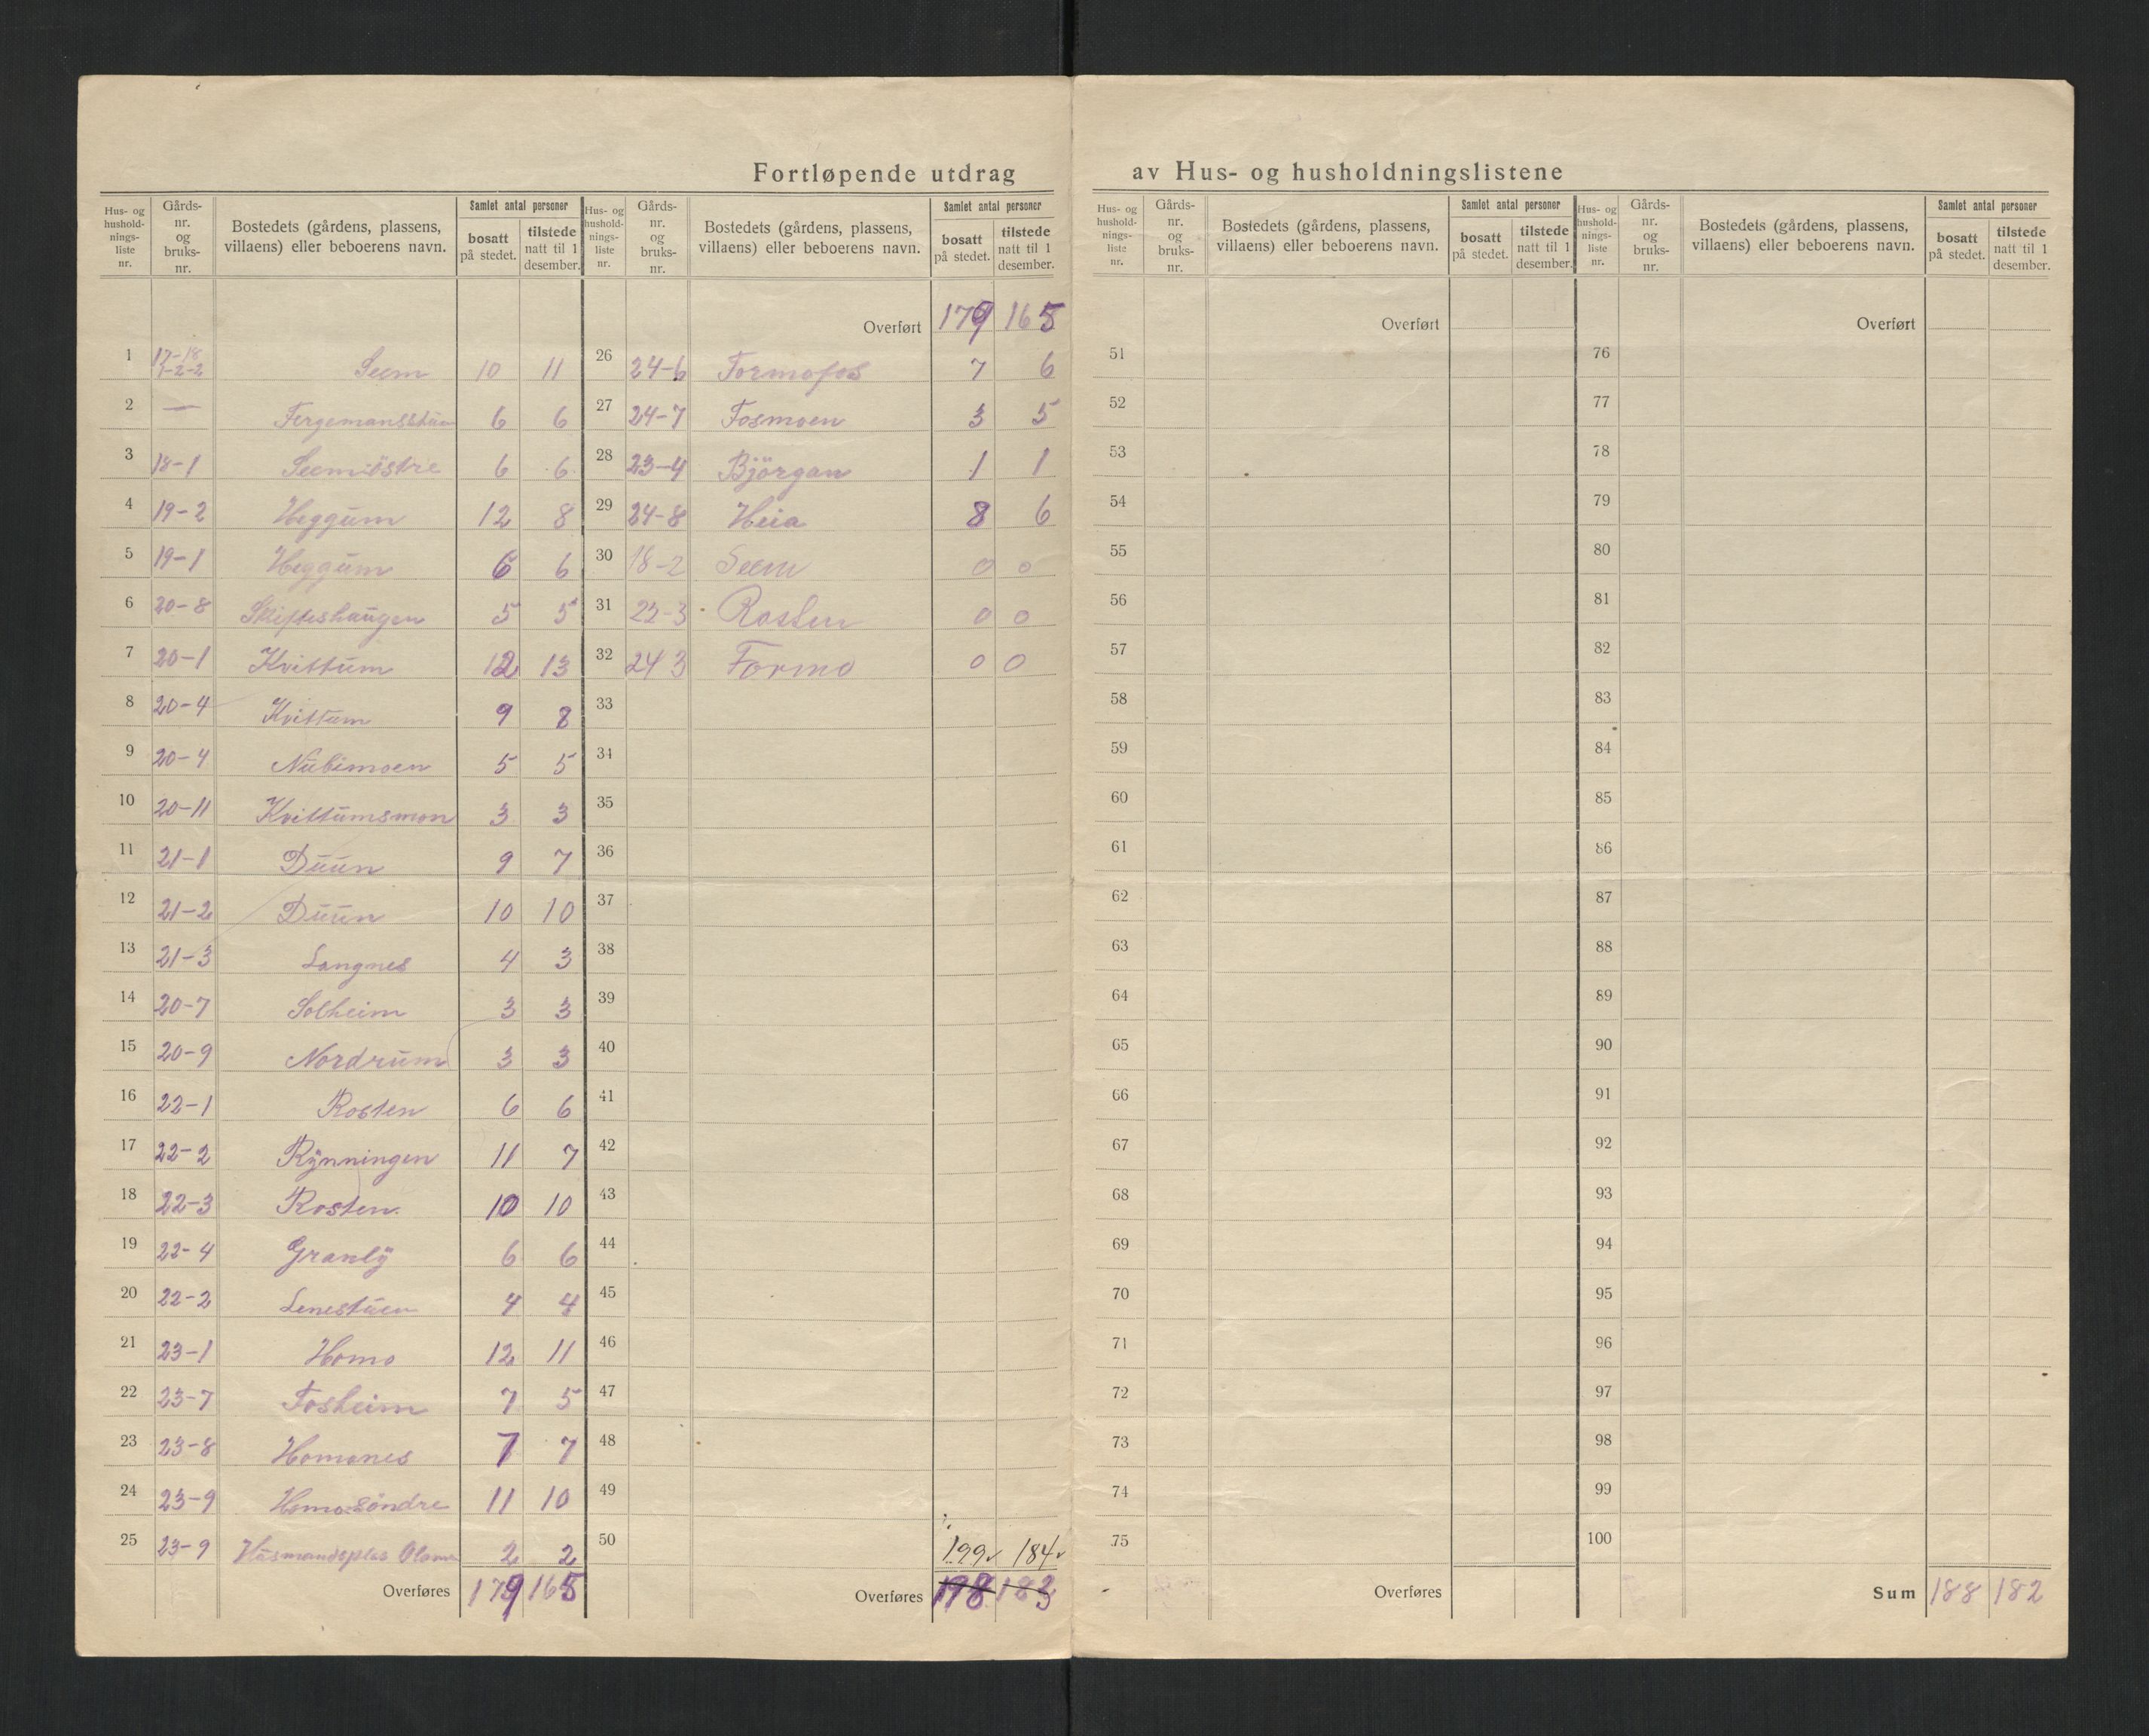 Fortløpende utdrag av Hus- og husholdningslistene
Hus- og hushold-nings-liste nr. | Gårds-nr. og bruks-nr. | Bostedets (gårdens, plassens, villaens) eller beboerens navn. | Samlet antal personer | bosatt på stedet. | tilstede natt til 1 desember.
1 17-18 1-2-2 Seem 10 11
2 — 6 6
3 18-1 Seem östre 6 6
4 19-2 Heggum 12 8
5 19-1 Heggum 6 6
6 20-8 Skifteshaugen 5 5
7 20-1 Kvittum 12 13
8 20-4 Kvittum 9 8
9 20-4 Nubimoen 5 5
10 20-11 Kvittumsmon 3 3
11 21-1 Duun 9 7
12 21-2 Duun 10 10
13 21-3 Langnes 4 3
14 20-7 Solheim 3 3
15 20-9 Nordrum 3 3
16 22-1 Rosten 6 6
17 22-2 Rynningen 11 7
18 22-3 Rosten 10 10
19 22-4 Granly 6 6
20 22-2 Lenestuen 4 4
21 23-1 Homo 12 11
22 23-7 Fosheim 7 5
23 23-8 Homones 7 7
24 23-9 Homo söndre 11 10
25 23-9 Husmandsplas 2 2
Overføres 179 165
Hus- og hushold-nings-liste nr. | Gårds-nr. og bruks-nr. | Bostedets (gårdens, plassens, villaens) eller beboerens navn. | Samlet antal personer | bosatt på stedet. | tilstede natt til 1 desember.
Overført 179 165
26 24-6 Formofos 7 6
27 24-7 Fosmoen 3 5
28 23-4 Björgan 1 1
29 24-8 Heia 8 6
30 18-2 Seem 0 0
31 22-3 Rosten 0 0
32 24 3 Formo 0 0
33
34
35
36
37
38
39
40
41
42
43
44
45
46
47
48
49
50 199 184
Overføres 198 183
Hus- og hushold-nings-liste nr. | Gårds-nr. og bruks-nr. | Bostedets (gårdens, plassens, villaens) eller beboerens navn. | Samlet antal personer | bosatt på stedet. | tilstede natt til 1 desember.
Overført
51
52
53
54
55
56
57
58
59
60
61
62
63
64
65
66
67
68
69
70
71
72
73
74
75
Overføres
Hus- og hushold-nings-liste nr. | Gårds-nr. og bruks-nr. | Bostedets (gårdens, plassens, villaens) eller beboerens navn. | Samlet antal personer | bosatt på stedet. | tilstede natt til 1 desember.
Overført
76
77
78
79
80
81
82
83
84
85
86
87
88
89
90
91
92
93
94
95
96
97
98
99
100
Sum 188 182